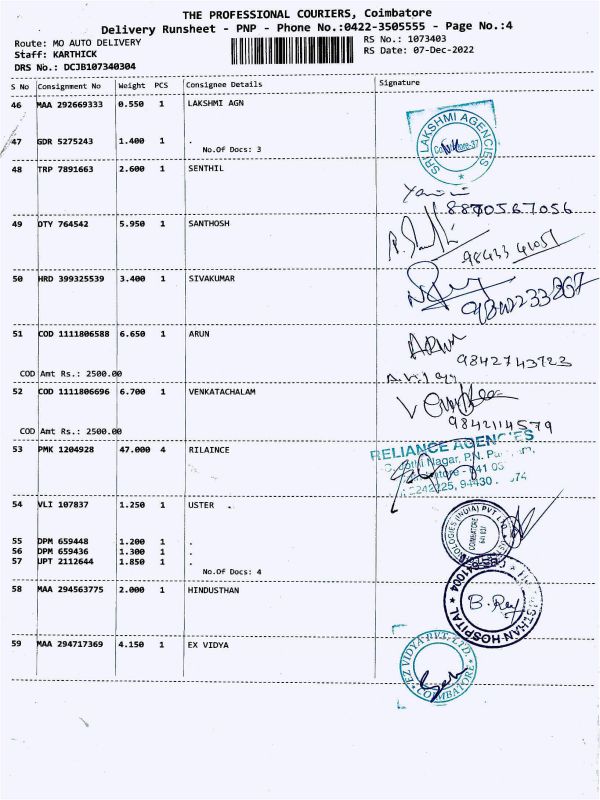 THE PROFESSIONAL COURIERS, Coimbatore
Delivery Runsheet - PNP - Phone No.:0422-3505555 - Page No.:4
Route: MO AUTO DELIVERY
RS No.: 1073403
Staff: KARTHICK
RS Date: 07-Dec-2022
DRS No.: DCJB107340304
S No Consignment No Weight PCS Consignee Details Signature
46 MAA 292669333 0.550 1 LAKSHMI AGN
SRI LAKSHMI AGENCIES
47 GDR 5275243 1.400 1 .
No.Of Docs: 3
48 TRP 7891663 2.600 1 SENTHIL
8870567056
49 DTY 764542 5.950 1 SANTHOSH
50 HRD 399325539 3.400 1 SIVAKUMAR
51 COD 1111806588 6.650 1 ARUN
ARUN
9842743723
COD Amt Rs.: 2500.00
52 COD 1111806696 6.700 1 VENKATACHALAM
9842114579
COD Amt Rs.: 2500.00
53 PMK 1204928 47.000 4 RILAINCE
RELIANCE AGENCIES
54 VLI 107837 1.250 1 USTER .
(INDIA) PVT LTD
COIMBATORE
55 DPM 659448 1.200 1 .
56 DPM 659436 1.300 1 .
57 UPT 2112644 1.850 1 .
No.Of Docs: 4
58 MAA 294563775 2.000 1 HINDUSTHAN
HOSPITAL
59 MAA 294717369 4.150 1 EX VIDYA
EZ VIDYA PVT. LTD.
COIMBATORE